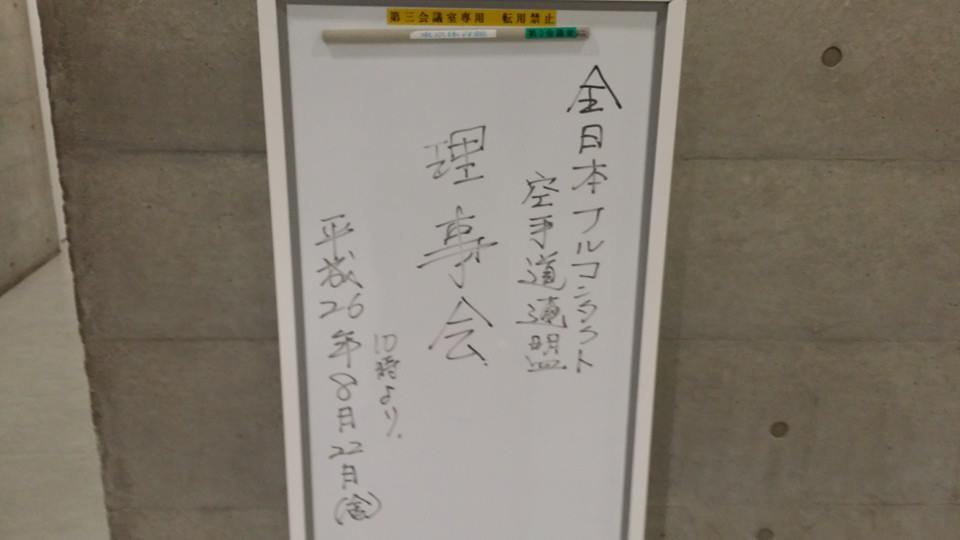 第三会議室専用　転用禁止
東京体育館
第3会議室
全日本フルコンタクト
空手道連盟
理事会
10時より
平成26年8月22日(金)